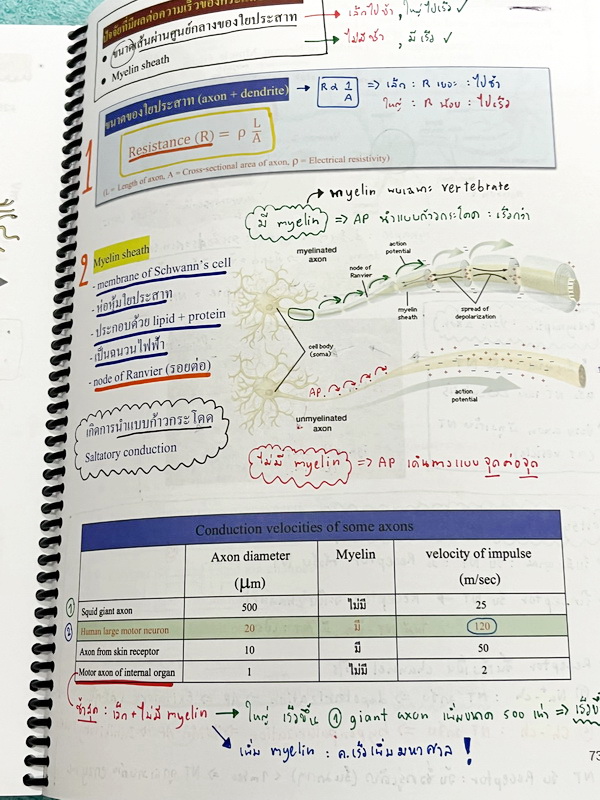 ปัจจัยที่มีผลต่อความเร็วของกระแส
• ขนาดเส้นผ่านศูนย์กลางของใยประสาท → เล็กไปช้า, ใหญ่ไปเร็ว ✓
• Myelin sheath → ไม่มีช้า, มีเร็ว ✓
ขนาดของใยประสาท (axon + dendrite) → R α 1/A ⇒ เล็ก : R เยอะ : ไปช้า
ใหญ่ : R น้อย : ไปเร็ว
1
Resistance (R) = ρ L/A
(L = Length of axon, A = Cross-sectional area of axon, ρ = Electrical resistivity)
myelin พบเฉพาะ vertebrate
มี myelin ⇒ AP นำแบบก้าวกระโดด : เร็วกว่า
2
Myelin sheath
- membrane of Schwann's cell
- ห่อหุ้มใยประสาท
- ประกอบด้วย lipid + protein
- เป็นฉนวนไฟฟ้า
- node of Ranvier (รอยต่อ)
เกิดการนำแบบก้าวกระโดด
Saltatory conduction
myelinated axon
action potential
node of Ranvier
myelin sheath
spread of depolarization
cell body (soma)
AP
action potential
unmyelinated axon
ไม่มี myelin ⇒ AP เดินทางแบบ จุดต่อจุด
Conduction velocities of some axons
Axon diameter (μm) Myelin velocity of impulse (m/sec)
① Squid giant axon 500 ไม่มี 25
② Human large motor neuron 20 มี 120
Axon from skin receptor 10 มี 50
Motor axon of internal organ 1 ไม่มี 2
ช้าสุด : เล็ก + ไม่มี myelin → ใหญ่ เร็วขึ้น ① giant axon เพิ่มขนาด 500 เท่า ⇒ เร็วขึ้น
เพิ่ม myelin : ค.เร็วเพิ่มมหาศาล !
73